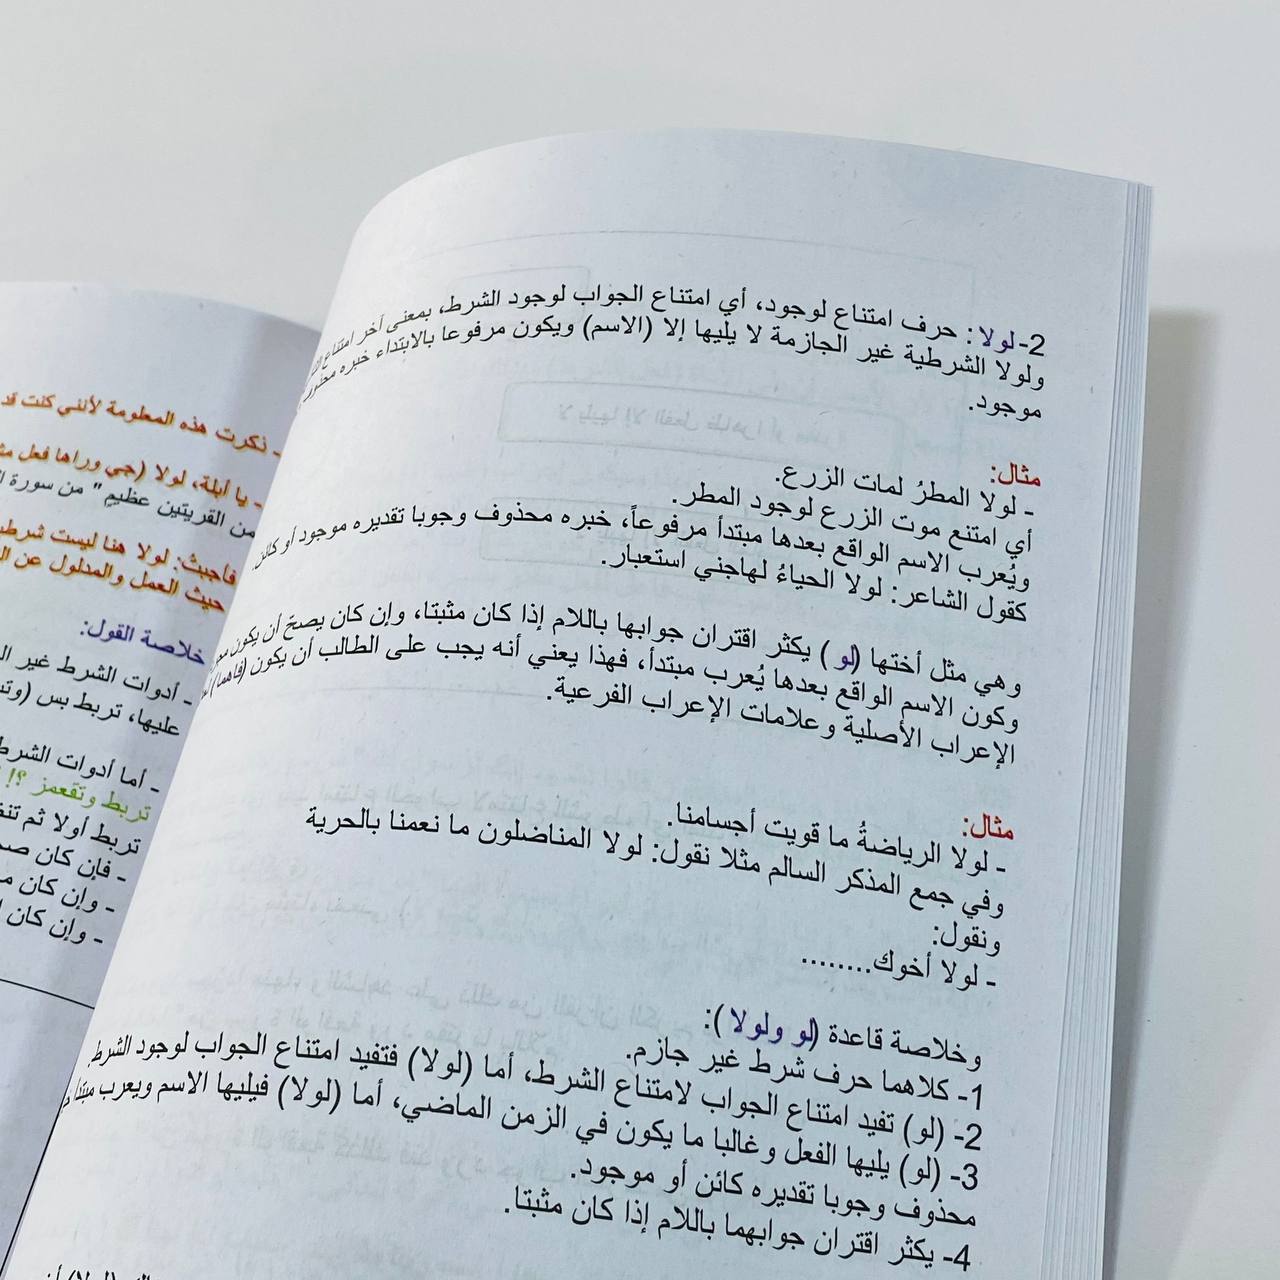 2- لولا: حرف امتناع لوجود، أي امتناع الجواب لوجود الشرط، بمعنى آخر امتناع
ولولا الشرطية غير الجازمة لا يليها إلا (الاسم) ويكون مرفوعا بالابتداء خبره محذوف
موجود.
مثال:
- لولا المطرُ لمات الزرع.
أي امتنع موت الزرع لوجود المطر.
ويُعرب الاسم الواقع بعدها مبتدأ مرفوعاً، خبره محذوف وجوبا تقديره موجود أو كائن.
كقول الشاعر: لولا الحياءُ لهاجني استعبار.
وهي مثل أختها (لو) يكثر اقتران جوابها باللام إذا كان مثبتا، وإن كان يصحّ أن يكون
وكون الاسم الواقع بعدها يُعرب مبتدأ، فهذا يعني أنه يجب على الطالب أن يكون (فاهما)
الإعراب الأصلية وعلامات الإعراب الفرعية.
مثال:
- لولا الرياضةُ ما قويت أجسامنا.
وفي جمع المذكر السالم مثلا نقول: لولا المناضلون ما نعمنا بالحرية
ونقول:
- لولا أخوك........
وخلاصة قاعدة (لو ولولا):
1- كلاهما حرف شرط غير جازم.
2- (لو) تفيد امتناع الجواب لامتناع الشرط، أما (لولا) فتفيد امتناع الجواب لوجود الشرط
3- (لو) يليها الفعل وغالبا ما يكون في الزمن الماضي، أما (لولا) فيليها الاسم ويعرب مبتدأ
محذوف وجوبا تقديره كائن أو موجود.
4- يكثر اقتران جوابهما باللام إذا كان مثبتا.
- ذكرت هذه المعلومة لأنني كنت قد
- يا أبلة، لولا (جي وراها فعل
من القريتين عظيم" من سورة
فأجبتُ: لولا هنا ليست
حيث العمل والمدلول عن
خلاصة القول:
- أدوات الشرط غير
عليها، تربط بس
- أما أدوات الشرط
تربط وتقعمز ؟!
تربط أولا ثم
- فإن كان
- وإن كان
- وإن كان